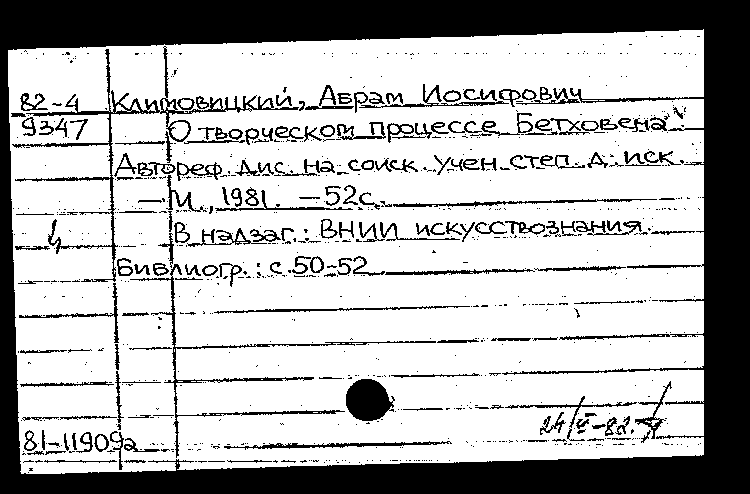 82-4 Климовицкий, Абрам Иосифович
9347 О творческом процессе Бетховена:
Автореф. дис. на соиск. учен. степ. д. иск.
— М., 1981. — 52с.
В надзаг.: ВНИИ искусствознания.
Библиогр.: с. 50-52
81-11909а